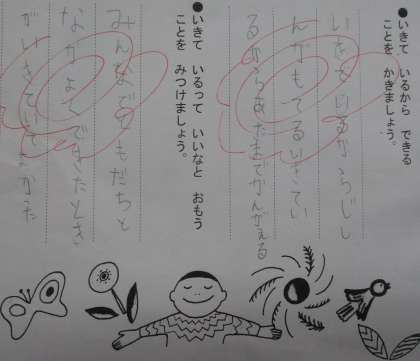 ●いきて いるから できる
ことを かきましょう。
いきているからじし
んがもてるいきてい
るからあたまでかんがえる
●いきて いるって いいなと おもう
ことを みつけましょう。
みんなでともだちと
なかよくできたとき
がいきていてよかった